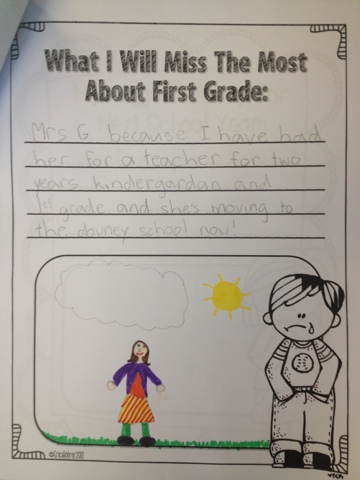 What I Will Miss The Most
About First Grade:
Mrs G. because I have had
her for a teacher for two
years kindergardan and
1st grade and she's moving to
the school now!